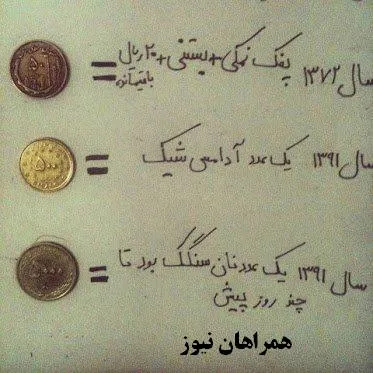 سال ۱۳۷۲ پفک نمکی + بستنی + ۲۰ ریال
باقیمانده
=
۵۰
سال ۱۳۹۱ یک عدد آدامس شیک
=
۵۰۰
سال ۱۳۹۱ یک عدد نان سنگک بود تا
چند روز پیش
=
همراهان نیوز